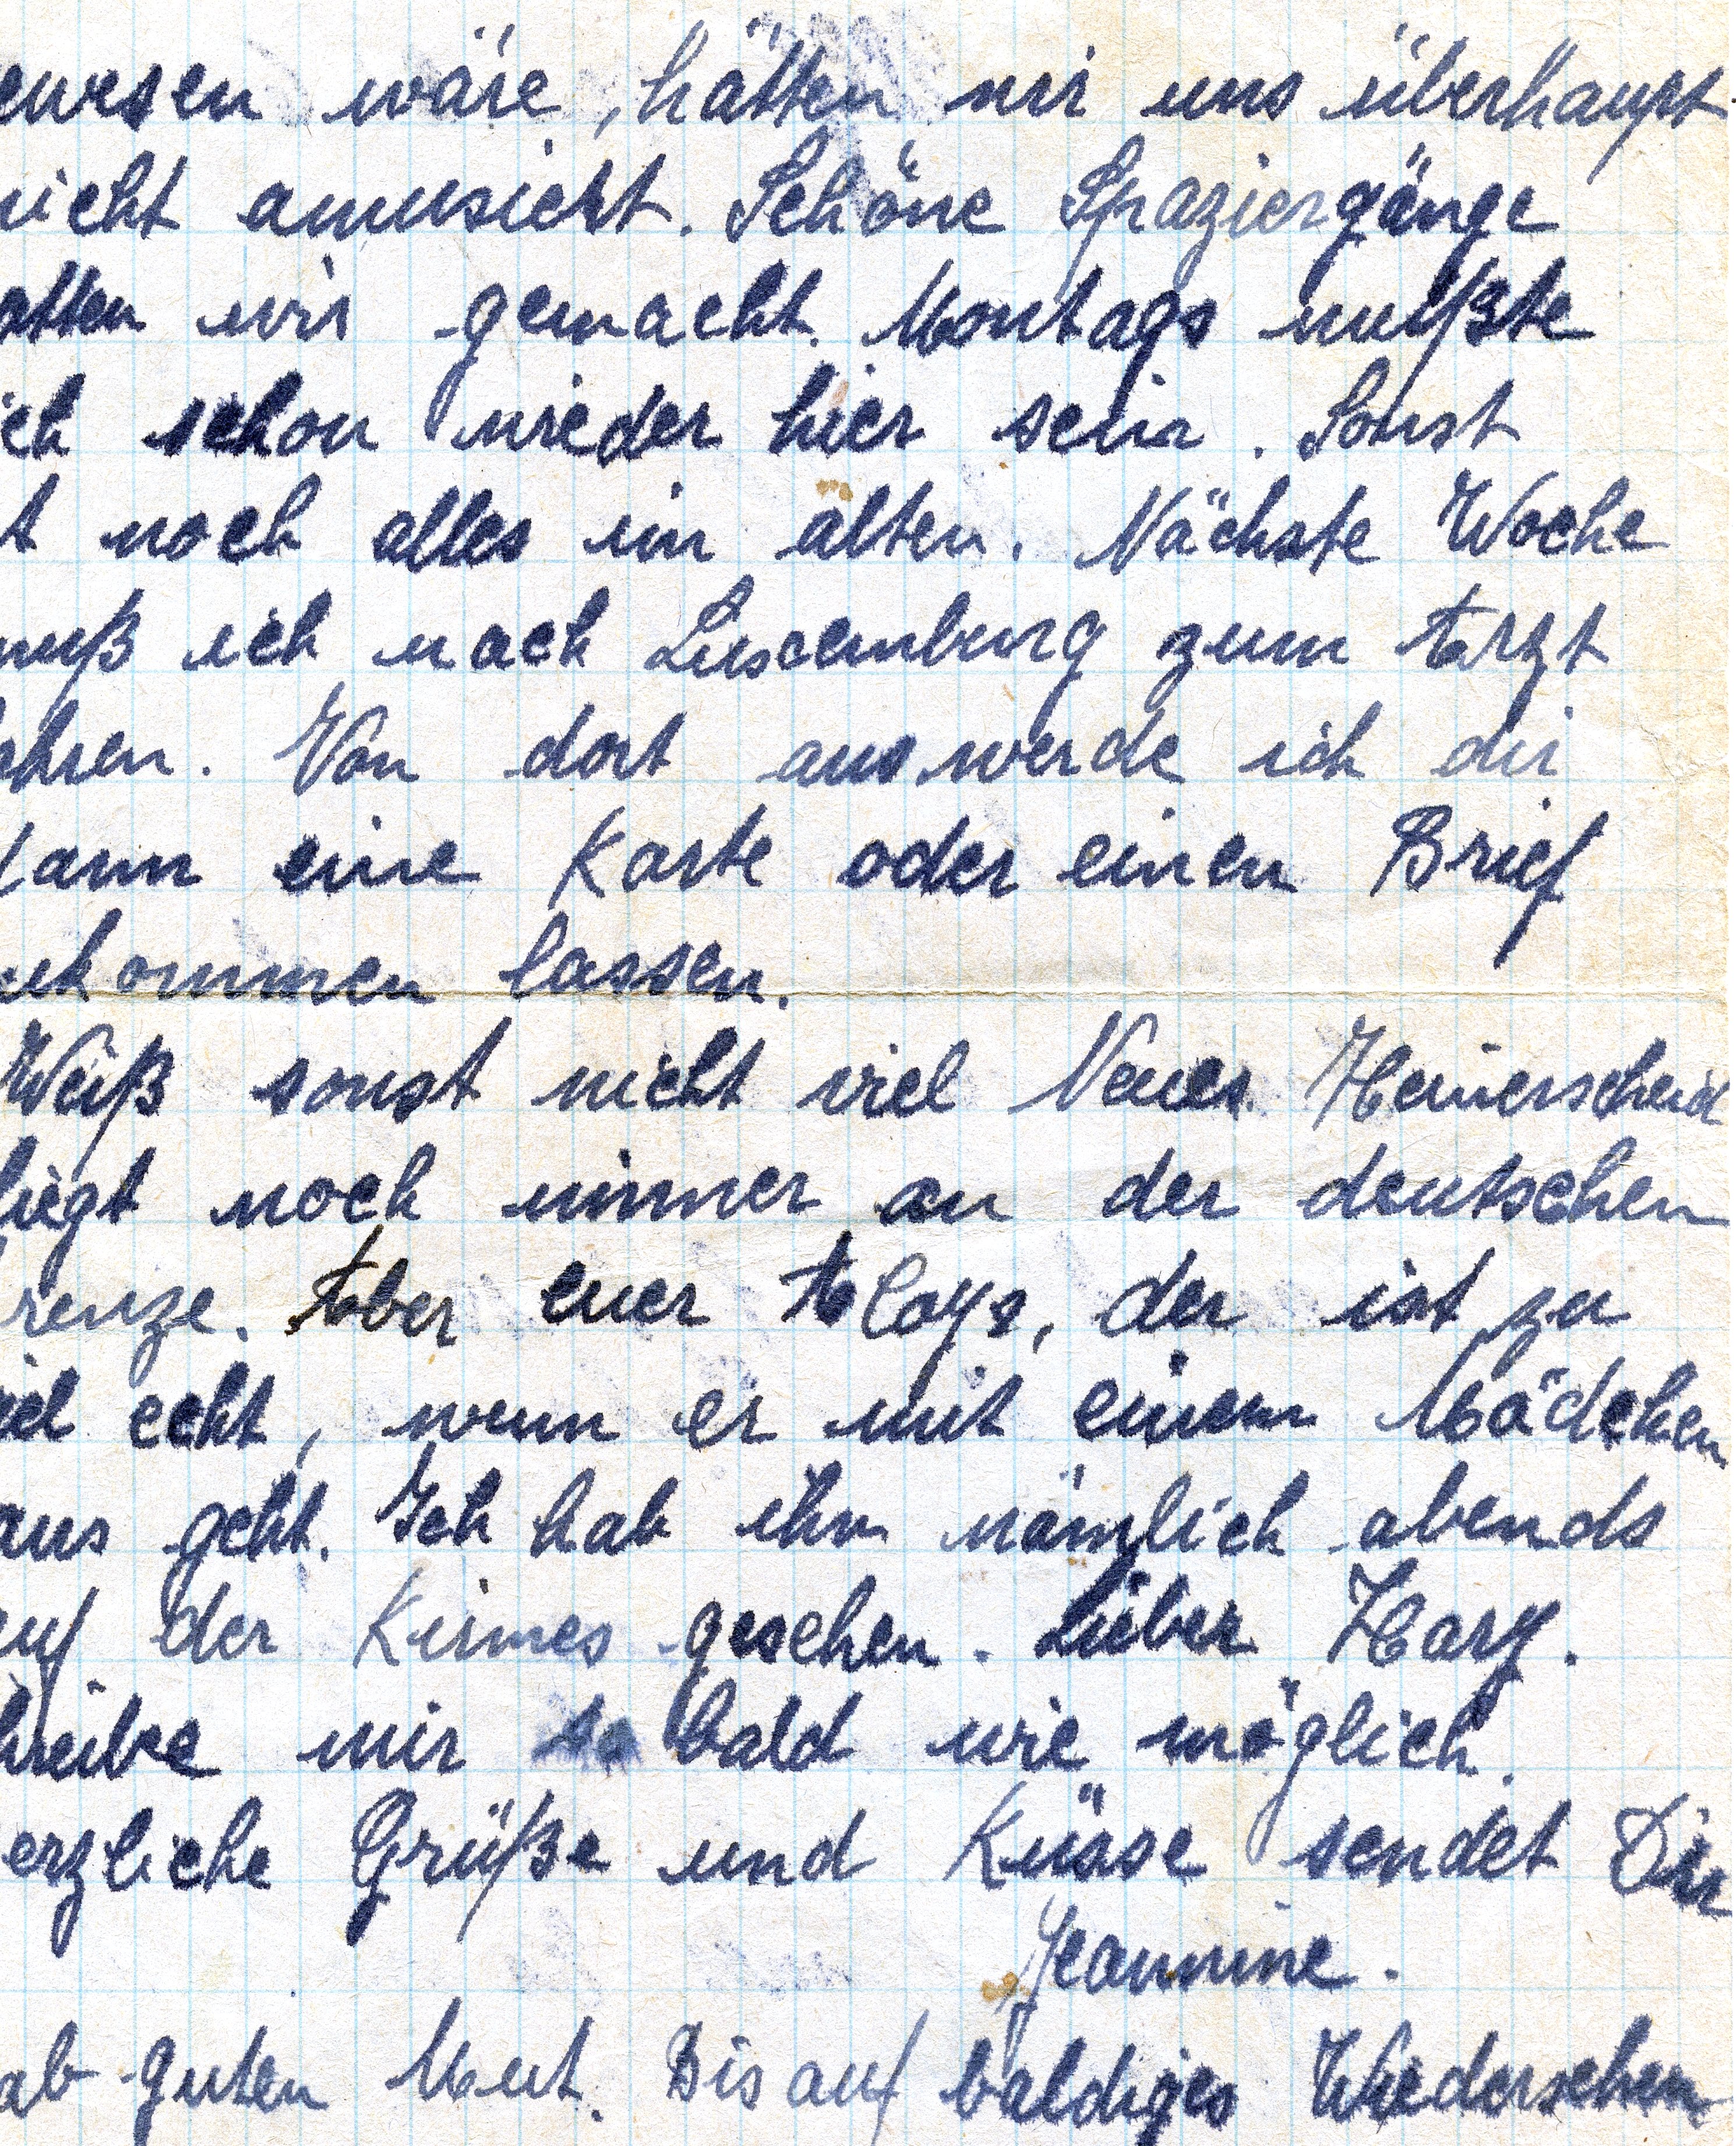 ewesen wäre, hätten wir uns überhaupt
nicht amusiert. Schöne Spaziergänge
atten wir gemacht. Montags mußte
ich schon wieder hier sein. Sonst
t noch alles im alten. Nächste Woche
muß ich nach Luxemburg zum Arzt
ahren. Von dort aus werde ich dir
dann eine Karte oder einen Brief
ukommen lassen.
Weiß sonst nicht viel Neues. Heinerscheid
liegt noch immer an der deutschen
renze. Aber euer Aloys, der ist zu
viel echt, wenn er mit einem Mädchen
aus geht. Ich hab ihn nämlich abends
auf der Kirmes gesehen. Lieber Hary.
hreibe mir so bald wie möglich.
erzliche Grüße und Küsse sendet Dir
Jeannine.
ab guten Mut. Bis auf baldiges Wiedersehen